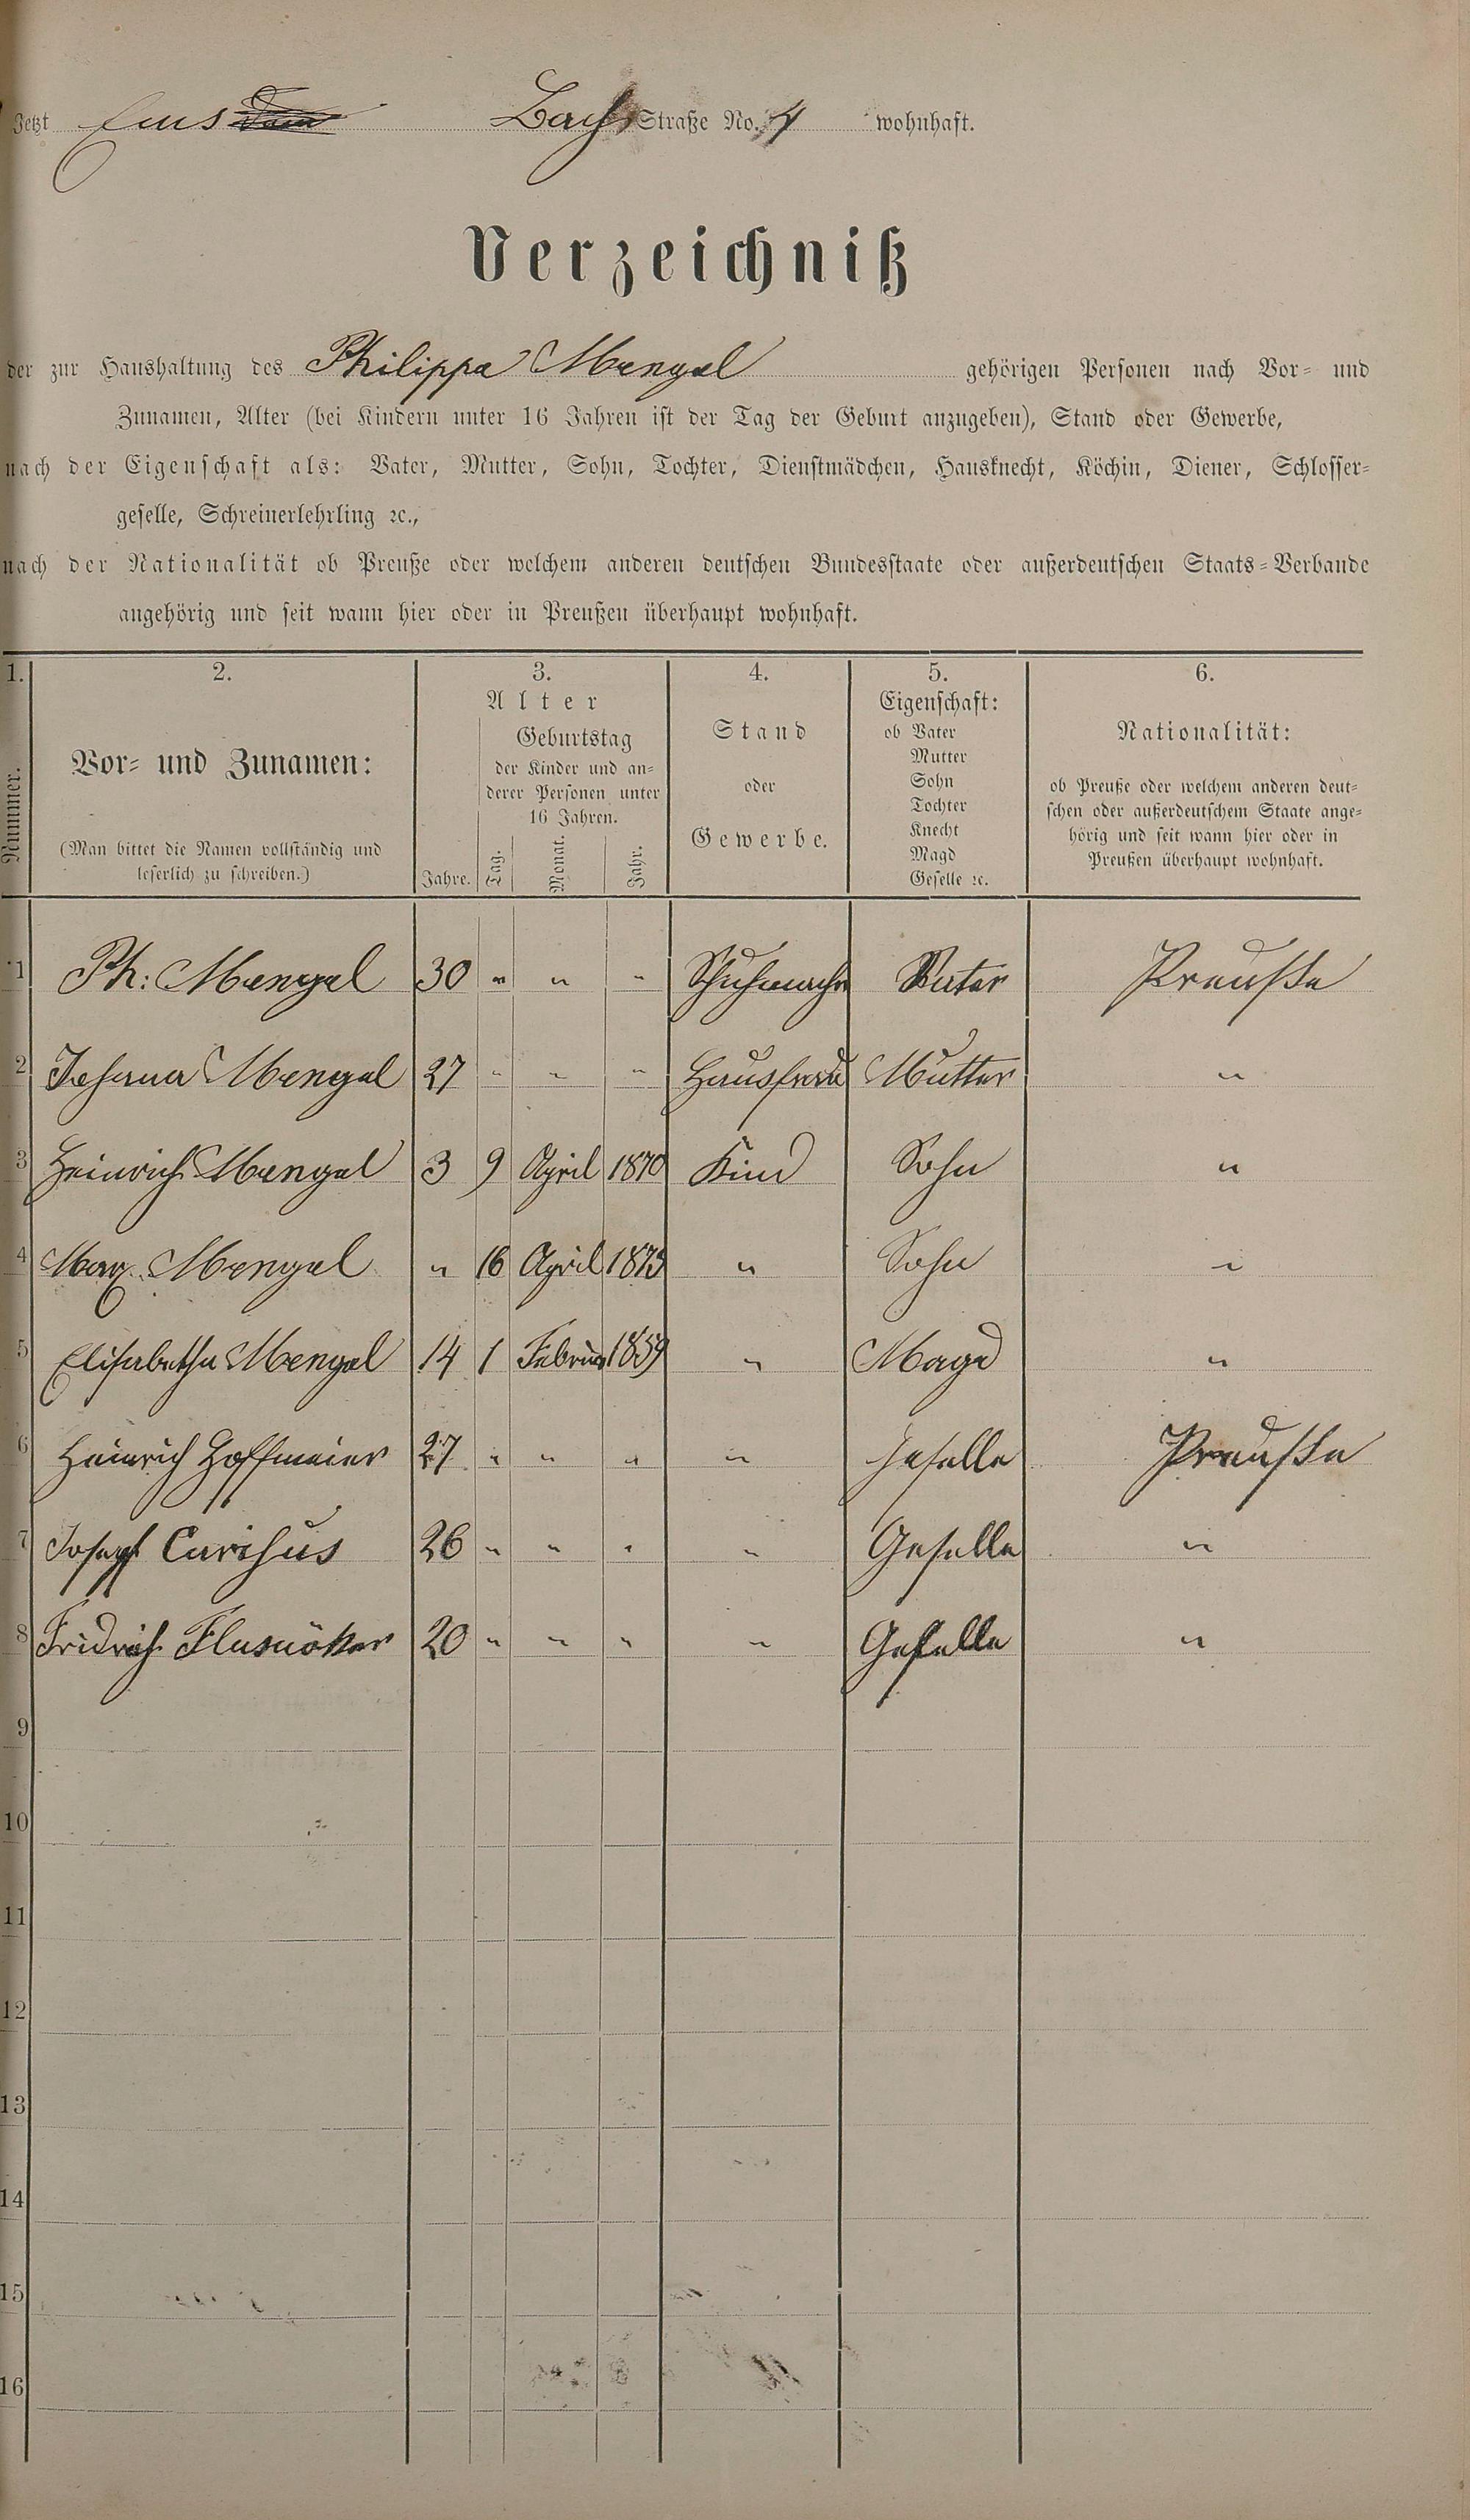 Jetzt Ems Bach Straße No. 4 wohnhaft.
Verzeichniß
der zur Haushaltung des Philippe Mengel gehörigen Personen nach Vor- und
Zunamen, Alter (bei Kindern unter 16 Jahren ist der Tag der Geburt anzugeben), Stand oder Gewerbe,
nach der Eigenschaft als: Vater, Mutter, Sohn, Tochter, Dienstmädchen, Hausknecht, Köchin, Diener, Schlosser-
geselle, Schreinerlehrling ꝛc.,
nach der Nationalität ob Preuße oder welchem anderen deutschen Bundesstaate oder außerdeutschen Staats-Verbande
angehörig und seit wann hier oder in Preußen überhaupt wohnhaft.
1. 2. 3. 4. 5. 6.
Nummer.
Vor- und Zunamen:
(Man bittet die Namen vollständig und
leserlich zu schreiben.)
Alter
Geburtstag
der Kinder und an-
derer Personen unter
16 Jahren.
Jahre. Tag. Monat. Jahr.
Stand
oder
Gewerbe.
Eigenschaft:
ob Vater
Mutter
Sohn
Tochter
Knecht
Magd
Geselle ꝛc.
Nationalität:
ob Preuße oder welchem anderen deut-
schen oder außerdeutschem Staate ange-
hörig und seit wann hier oder in
Preußen überhaupt wohnhaft.
1 Ph: Mengel 30 " " " Schuhmacher Vater Preuße
2 Johanna Mengel 27 " " " Hausfrau Mutter "
3 Heinrich Mengel 3 9 April 1870 Kind Sohn "
4 Max Mengel " 16 April 1873 " Sohn "
5 Elisabetha Mengel 14 1 Februar 1859 " Magd "
6 Heinrich Hoffmeier 27 " " " " Geselle Preuße
7 Josepf 26 " " " " Geselle "
8 Fridrich 20 " " " " Geselle "
9
10
11
12
13
14
15
16